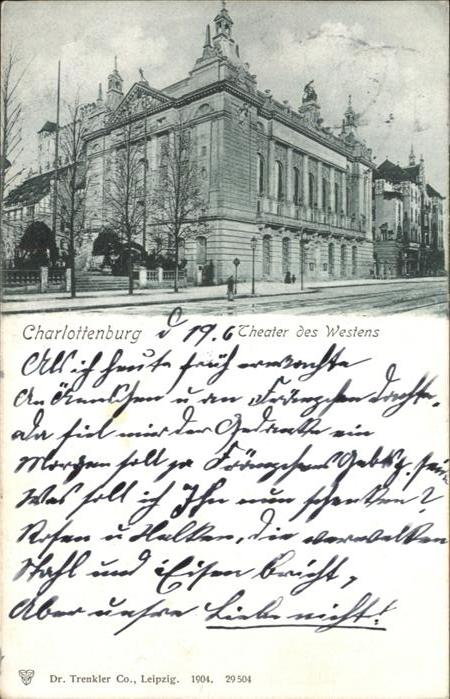 Charlottenburg d 19.6 Theater des Westens
Als ich heute früh erwachte
An Ännchen u an Fränzchen dachte,
Da fiel mir der Gedanke ein
Morgen soll ja Fränzchens Gebtg. sein
Was soll ich Ihn nun schenken?
Rosen u Nelken, die verwelken
Stahl und Eisen bricht,
Aber unsre Liebe nicht!
Dr. Trenkler Co., Leipzig. 1904. 29504